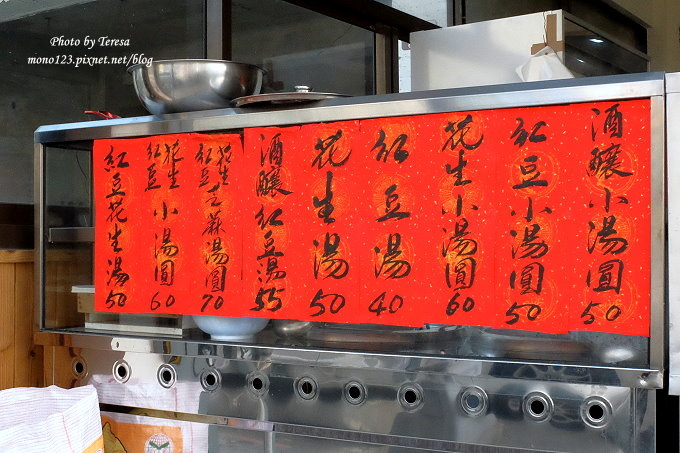 Photo by Teresa
mono123.pixnet.net/blog
酒釀小湯圓50
紅豆小湯圓50
花生小湯圓60
紅豆湯40
花生湯50
酒釀紅豆湯55
花生紅豆芝麻湯圓70
花生紅豆小湯圓60
紅豆花生湯50